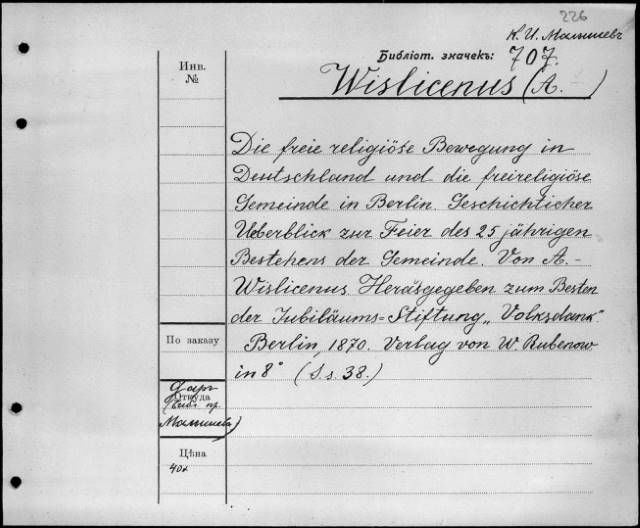 226
К. И. Малышевъ
Библіот. значекъ: 707.
Инв.
№
Wislicenus (A. –)
Die freie religiöse Bewegung in
Deutschland und die freireligiöse
Gemeinde in Berlin. Geschichtlicher
Ueberblick zur Feier des 25 jährigen
Bestehens der Gemeinde. Von A.–
Wislicenus. Heräsgegeben zum Besten
der Jubiläums=Stiftung „Volksdank“
По заказу
Berlin, 1870. Verlag von W. Rubenow
in 8° (S.s. 38.)
Даръ
Откуда
(Библ. пр.
Малышевъ)
Цѣна
40к